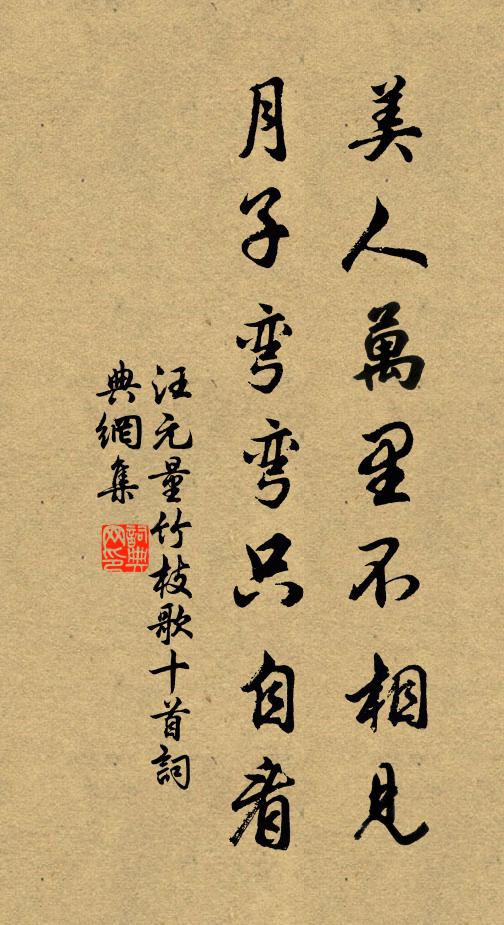 美人萬里不相見
月子弯弯只自看
汪元量竹枝歌十首詞
典網集
詞典網印